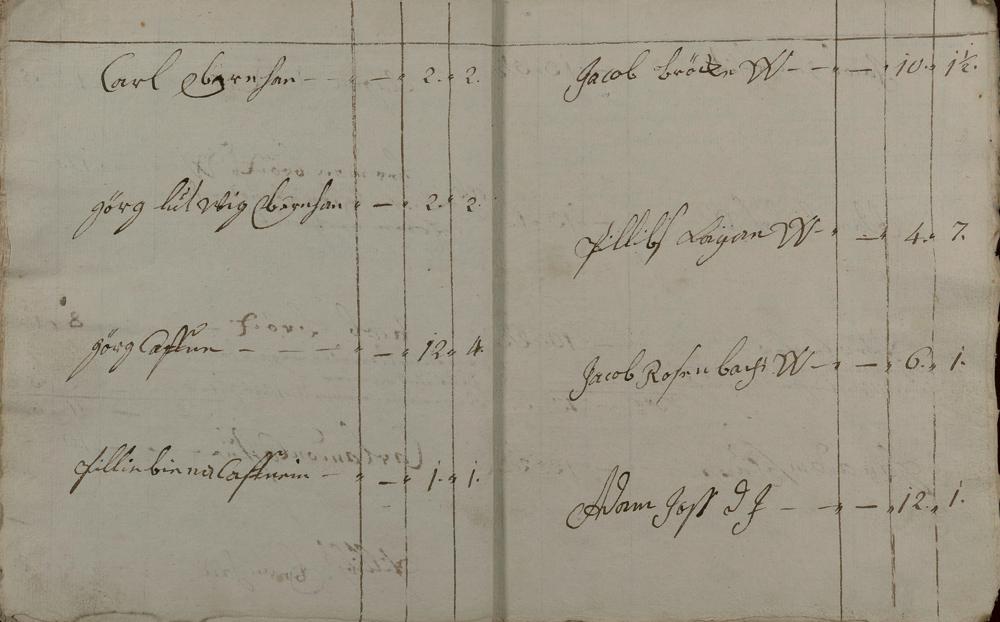 Carl Bernhan — " — " 2. " 2.
görg lutwig Bernhan " — " 2. " 2.
görg Castine — — — " — " 12 " 4.
Pilliebiena Castnein — " — " 1. " 1.
Jacob bröcke W — — " — " 10. " 1½.
Pillibs Layan W — " — " 4. " 7.
Jacob Rosenbachs W — " — " 6. " 1.
Adam Jost d J — — " — " 12. " 1.